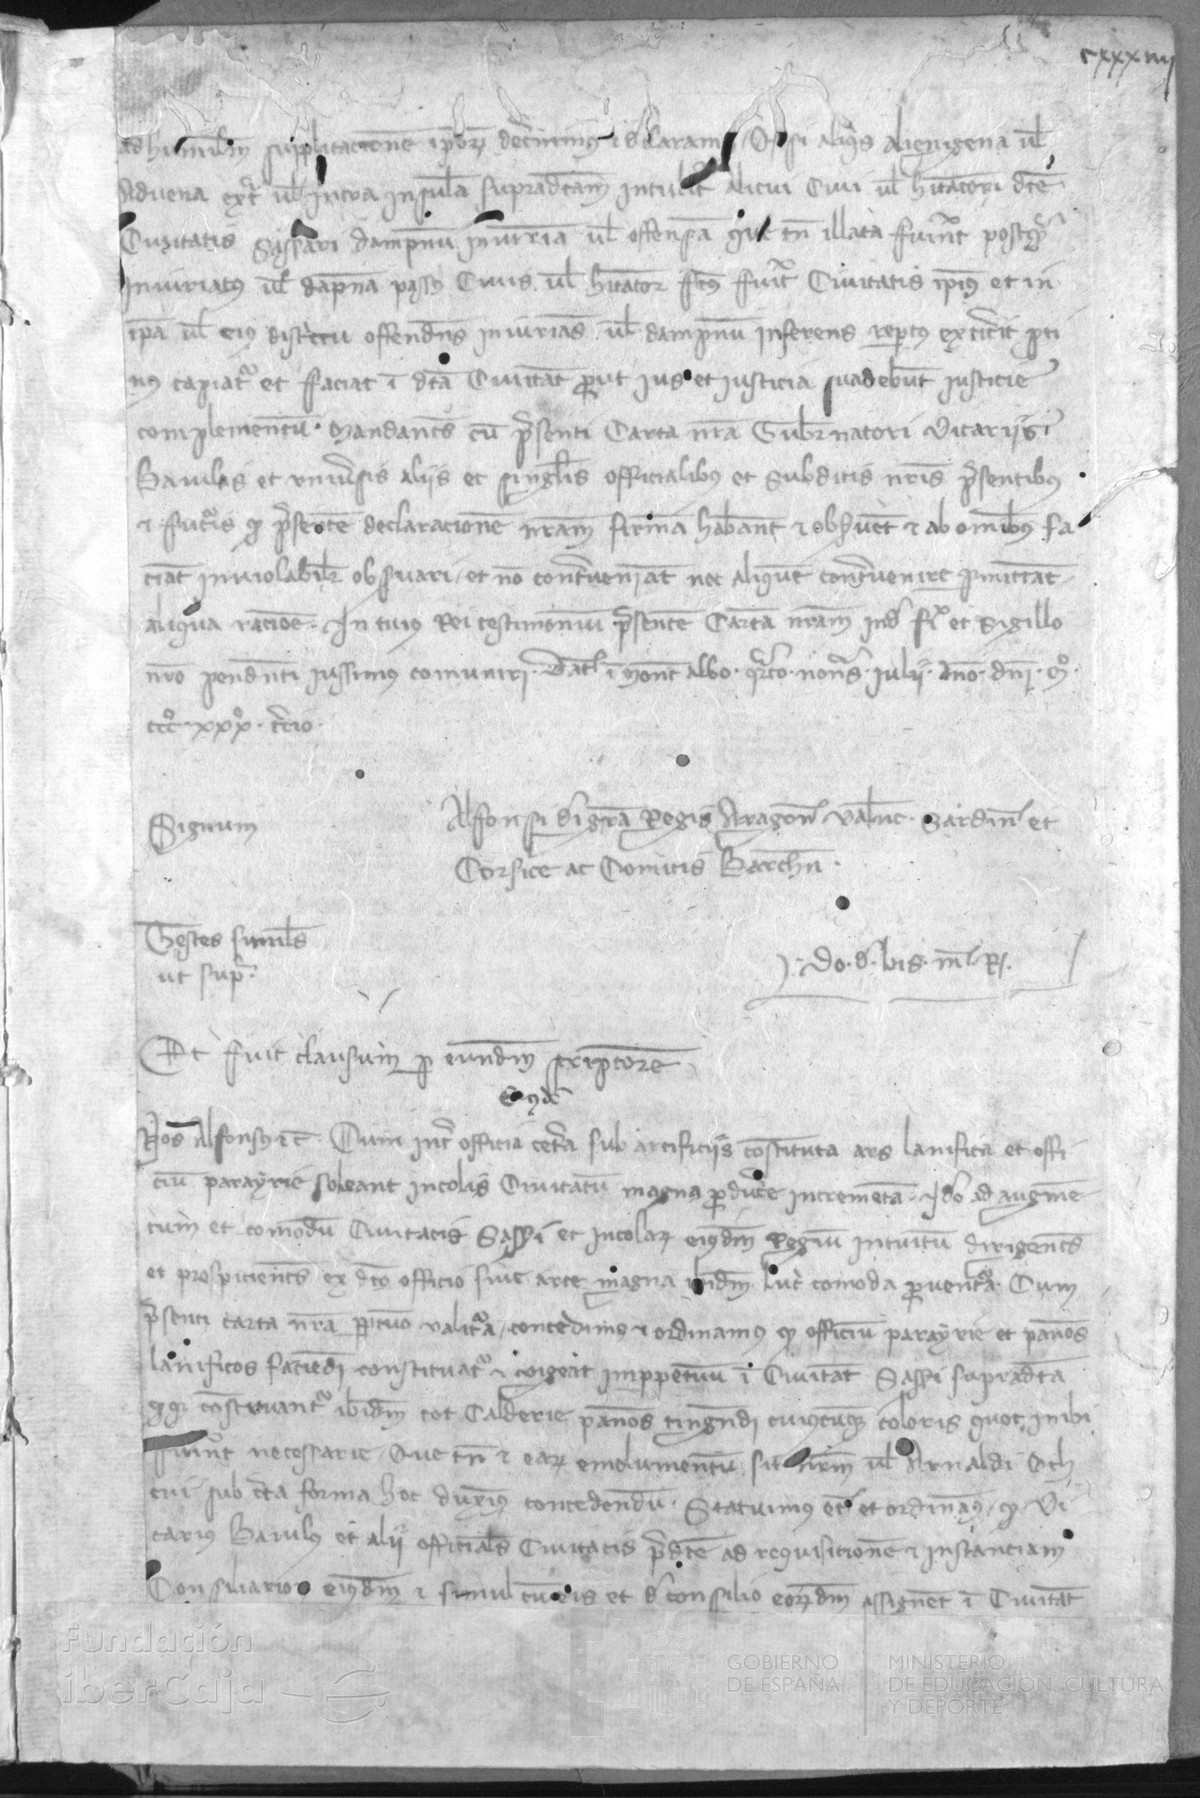 cxxxiiij
ad humilem supplicacionem ipsorum decernimus et declaramus Quod si aliquis alienigena vel
Advena extra vel intra insulam supradictam intulerit alicui Civi vel habitatori dicte
Civitatis Sassari dampnum iniuriam vel offensam que tamen illata fuerint postquam
iniuriatus vel dampna passus Civis vel habitator factus fuerit Civitatis ipsius et in
ipsa vel eius districtu offendens iniurians vel dampnum inferens repertus extiterit
capiatur et faciat in dicta Civitate prout ius et iusticia suadebunt iusticie
complementum. Mandantes cum presenti Carta nostra Gubernatori Vicariis
Baiulis et universis aliis et singulis officialibus et Subditis nostris presentibus
et futuris quod presentem declaracionem nostram firmam habeant et observent et ab omnibus fa
ciant inviolabiliter observari et non contraveniant nec aliquem contravenire permittant
aliqua racione. In cuius Rei testimonium presentem Cartam nostram inde fieri et Sigillo
nostro pendenti iussimus comuniri. Data in Monte Albo. quarto. nonas. Julii. Anno. domini. Mº.
cccº. xxxº. tercio.
Signum
Alfonsi dei gratia Regis Aragonum Valencie. Sardinie et
Corsice ac Comitis Barchinone.
Testes similes
ut supra.
Et fuit clausum per eundem scriptorem
Eiusdem
Nos Alfonsus etc. Cum inter officia cetera sub artificiis constituta ars lanifica et offi
cium parayrie soleant incolis Civitatum magna producere incrementa. Ideo ad augmen
tum et comodum Civitatis Sasseri et incolarum eiusdem Regium intuitum dirigentes
et prospicientes ex dicto officio sive arte magna ibidem comoda proventura. Cum
presenti carta nostra perpetuo valitura concedimus et ordinamus quod officium parayrie et pannos
lanificos faciendi constituatur et vigeat imperpetuum in Civitate Sasseri supradicta
quodque constituantur ibidem tot Calderie pannos tingendi cuiuscumque coloris quot inibi
fuerint necessarie Que tamen et earum emolumentum sit nostrum vel Arnaldi
cui sub certa forma hoc duximus concedendum. Statuimus etiam et ordinamus quod Vi
carius Baiulus et alii officiales Civitatis predicte ad requisitionem et instanciam
Consiliariorum eiusdem et simul cum eis et de consilio eorundem assignent in Civitate
Fundación
iberCaja
GOBIERNO
DE ESPAÑA
MINISTERIO
DE EDUCACIÓN, CULTURA
Y DEPORTE